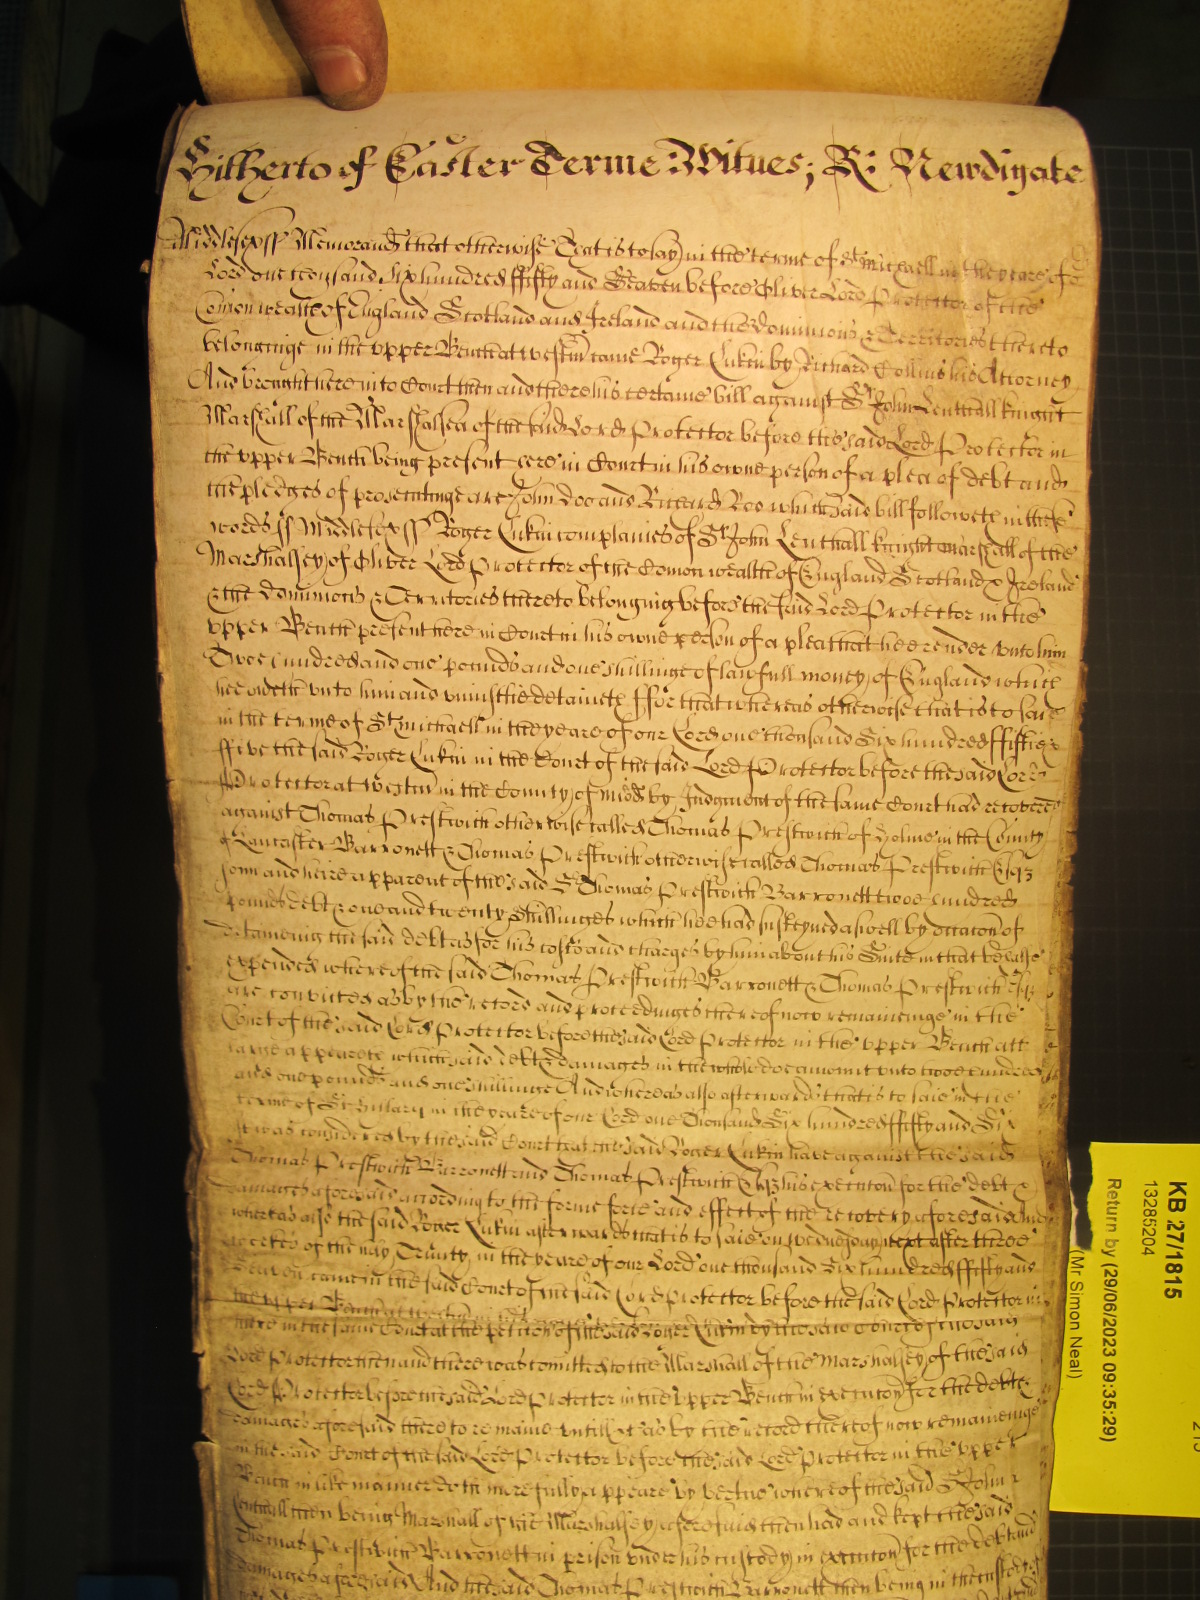 Hitherto of Easter Terme Witnes; R: Newdigate
Middlesex ss Memorand that otherwise That is to say in the terme of St Michaell in the yeare of o
Lord one thousand six hundred ffifty and Seaven before Oliver Lord Protector of the
Comon wealth of England Scotland and Ireland and the dominions & Territories thereto
belonginge in the upper Bench at Westm came Roger Lukin by Richard Collins his Attorney
And brought here into Court then and there his certaine bill against Sr John Lenthall knight
Marshall of the Marshalsea of the said Lord Protector before the said Lord Protector in
the upper Bench being present here in Court in his owne person of a plea of debt and
the pledges of prosecutinge are John Doo and Richard Roo which said bill followeth in these
words ss Middlesex ss Roger Lukin complaines of Sr John Lenthall knight marshall of the
Marshallsey of Oliver Lord Protector of the Comon wealth of England Scotland & Ireland
& the dominions & Territories thereto belonging before the said Lord Protector in the
upper Bench present here in Court in his owne person of a plea that hee render unto him
Twoe hundred and one pounds and one shillinge of lawfull money of England which
hee oweth unto him and uniustlie detaineth ffor that whereas otherwise that is to say
in the terme of St Michaell in the yeare of our Lord one thousand Six hundred ffiftie &
ffive the said Roger Lukin in the Court of the said Lord Protector before the said Lord
Protector at Westm in the County of Midd by Judgment of the same Court had recovered
against Thomas Prestwich otherwise called Thomas Prestwich of Holme in the County
of Lancaster Barronett & Thomas Prestwich otherwise called Thomas Prestwich Esqz
sonn and heire apparent of the said Sr Thomas Prestwich Barronett twoe hundred
pounds debt & one and twenty Shillinges which hee had susteyned aswell by occacon of
detaineing the said debt as for his costs and charges by him about his Suite in that behalfe
expended whereof the said Thomas Prestwich Barronett & Thomas Prestwich Esqz
are convicted as by the record and proceedinges thereof now remaineinge in the
Court of the said Lord Protector before the said Lord Protector in the upper Bench att
large appeareth which said debt & damages in the whole doe amount unto twoe hundred
and one pounds and one shillinge And whereas also afterwards that is to saie in the
terme of St Hilary in the yeare of our Lord one Thousand Six hundred ffifty and Six
It was considered by the said Court that the said Roger Lukin have against the said
Thomas Prestwich Barronett and Thomas Prestwich Esqz his execucon for the debt &
damages aforesaid according to the forme force and effect of the recovery aforesaid And
whereas alsoe the said Roger Lukin afterwards that is to saie on Wednesday next after three
weekes of the holy Trinity in the yeare of our Lord one thousand Six hundred ffifty and
Seaven came in the said Court of the said Lord Protector before the said Lord Protector in
the upper Bench at Westm
there in the same Court at the peticon of the said Roger Lukin by the said Court of the said
Lord Protector then and there was comitted to the Marshall of the Marshalsey of the said
Lord Protector before the said Lord Protector in the upper Bench in execucon for the debt &
damages aforesaid there to remaine untill &c as by the record thereof now remaineinge
in the said Court of the said Lord Protector before the said Lord Protector in the upper
Bench in like manner doth more fully appeare by vertue whereof the said Sr John
Lenthall then being Marshall of the Marshalsey aforesaid then had and kept the said
Thomas Prestwich Barronett in prison under his custody in execucon for the debt and
damages aforesaid And the said Thomas Prestwich Barronett then being in the custody
KB 27/1815
13285204
Return by (29/06/2023 09:35:29)
(Mr Simon Neal)